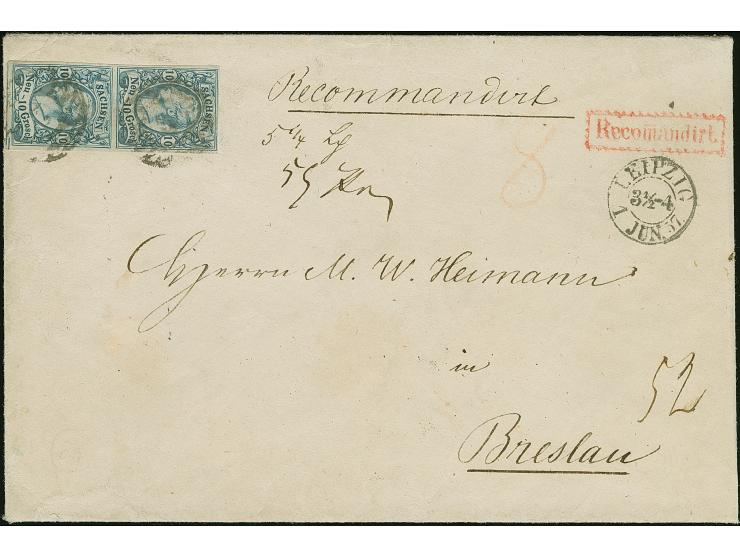 SACHSEN
10
10
Neu-10-Grosch.
SACHSEN
10
10
Neu-10-Grosch.
Recommandirt
Recomandirt.
5 1/4 Lg
55
8
LEIPZIG
3½-4
1 JUN. 57
Herrn M. W. Heimann
in
52
Breslau